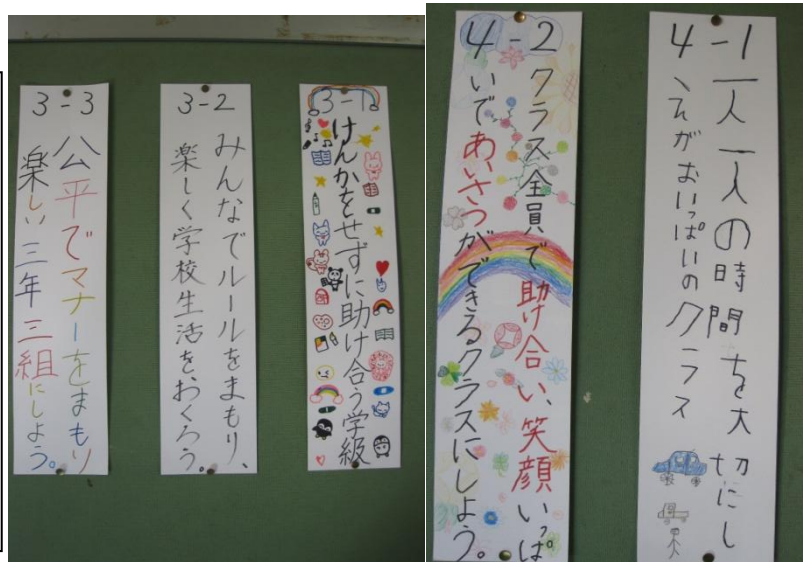 3-3
公平でマナーをまもり
楽しい三年三組にしよう。
3-2
みんなでルールをまもり、
楽しく学校生活をおくろう。
3-1
けんかをせずに助け合う学級
4-2
クラス全員で助け合い、笑顔いっぱ
いであいさつができるクラスにしよう。
4-1
一人一人の時間を大切にし
えがおいっぱいのクラス